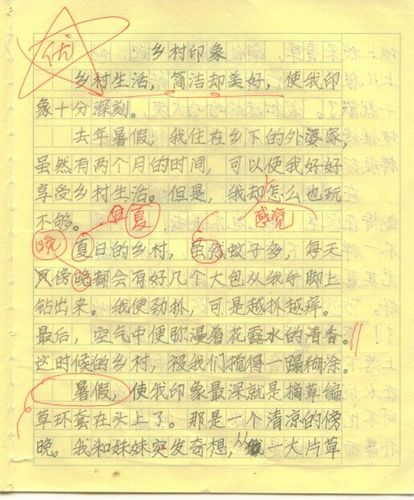 优
乡村印象
乡村生活，简洁却美好，使我印
象十分深刻。
去年暑假，我住在乡下的外婆家，
虽然有两个月的时间，可以使我好好
享受乡村生活。但是，我却怎么也玩
不够。
夏
感觉
晚
夏日的乡村，虽然蚊子多，每天
傍晚都会有好几个大包从我的脚上
钻出来。我使劲抓，可是越抓越痒。
最后，空气中便弥漫着花露水的清香。
这时候的乡村，被我们搞得一蹋糊涂。
暑假，使我印象最深就是摘草编
草环套在头上了。那是一个清凉的傍
晚。我和妹妹突发奇想，一大片草